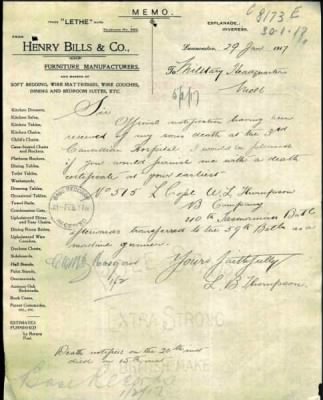 MEMO.
TRADE "LETHE" MARK
8173 E
30.1.18
ESPLANADE,
INVERESK.
FROM
HENRY BILLS & CO.,
FURNITURE MANUFACTURERS,
AND MAKERS OF
SOFT BEDDING, WIRE MATTRESSES, WIRE COUCHES,
DINING AND BEDROOM SUITES, ETC.
Launceston, 29 Jan 1917
To Military Headquarters
5/2/17
Sir
Official notification having been
received of my sons death at the 3rd
Canadian Hospital I would be pleased
if you would furnish me with a death
certificate at your earliest
No 515 L Cpl W. L. Thompson
B Company
40th Tasmanian Batt
afterwards transferred to the 59th Batts as a
machine gunner.
Yours faithfully
L. B. Thompson.
Kitchen Dressers,
Kitchen Safes,
Kitchen Tables,
Kitchen Chairs,
Cane-Seated Chairs
and Rockers,
Platform Rockers,
Dining Tables,
Toilet Tables,
Washstands,
Drawing Tables,
Occasional Tables,
Towel Rails,
Combination Sets,
Upholstered Easy
and Easy Chairs,
Dining Room Suites,
Upholstered Wire
Couches,
Duchess Chests,
Sideboards,
Hall Stands,
Palm Stands,
Overmantels,
Austrian Oak
Bedsteads,
Book Cases,
Patent Commodes,
etc., etc.
ESTIMATES
FURNISHED
by Return Post.
BASE RECORDS
EXTRA STRONG
MAKE
Death notified on the 20th inst
died on 15th inst
Base Records
1/2/17